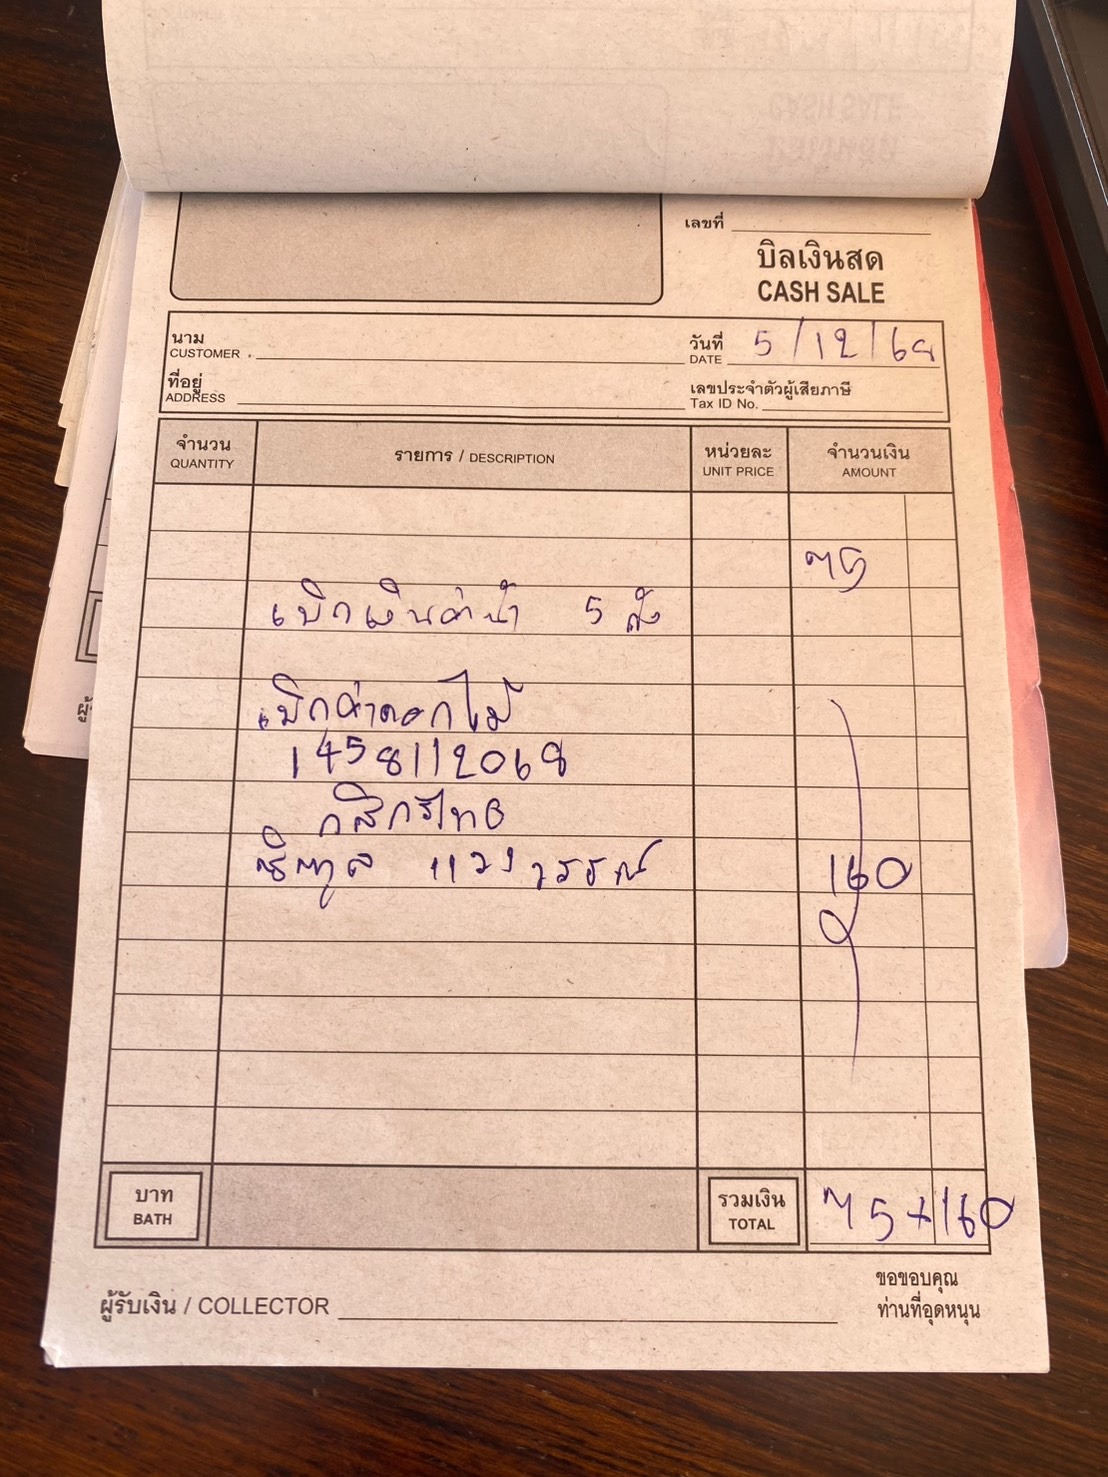 เลขที่
บิลเงินสด
CASH SALE
นาม
CUSTOMER
วันที่ 5/12/68
DATE
ที่อยู่
ADDRESS
เลขประจำตัวผู้เสียภาษี
Tax ID No.
จำนวน รายการ / DESCRIPTION หน่วยละ จำนวนเงิน
QUANTITY UNIT PRICE AMOUNT
75
เบิกเงินค่าน้ำ 5 ถัง
เบิกค่าดอกไม้
1458112068
กสิกรไทย
160
บาท รวมเงิน 75+160
BATH TOTAL
ขอขอบคุณ
ผู้รับเงิน / COLLECTOR ท่านที่อุดหนุน